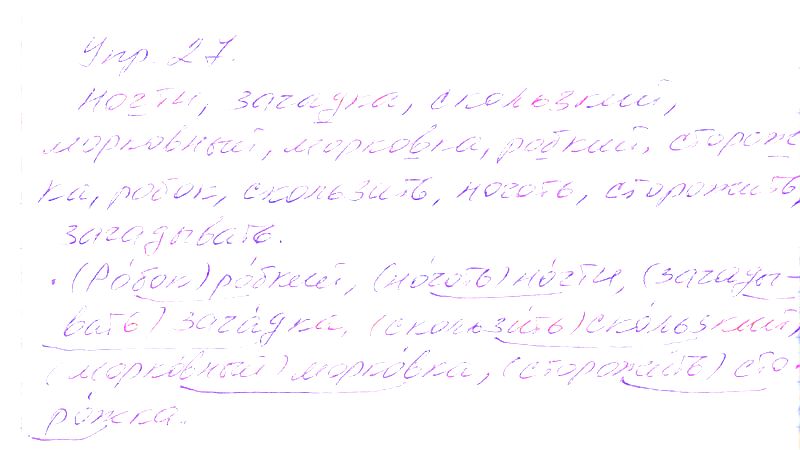 Упр 27.
Ногти, загадка, скользкий,
морковный, морковка, робкий, сторож-
ка, робок, скользить, ноготь, сторожить,
загадывать.
· (Ро́бок) ро́бкий, (но́готь) но́гти, (загады-
вать) зага́дка, (скользи́ть) ско́льзкий,
(морко́вный) морко́вка, (сторожи́ть) сто-
ро́жка.